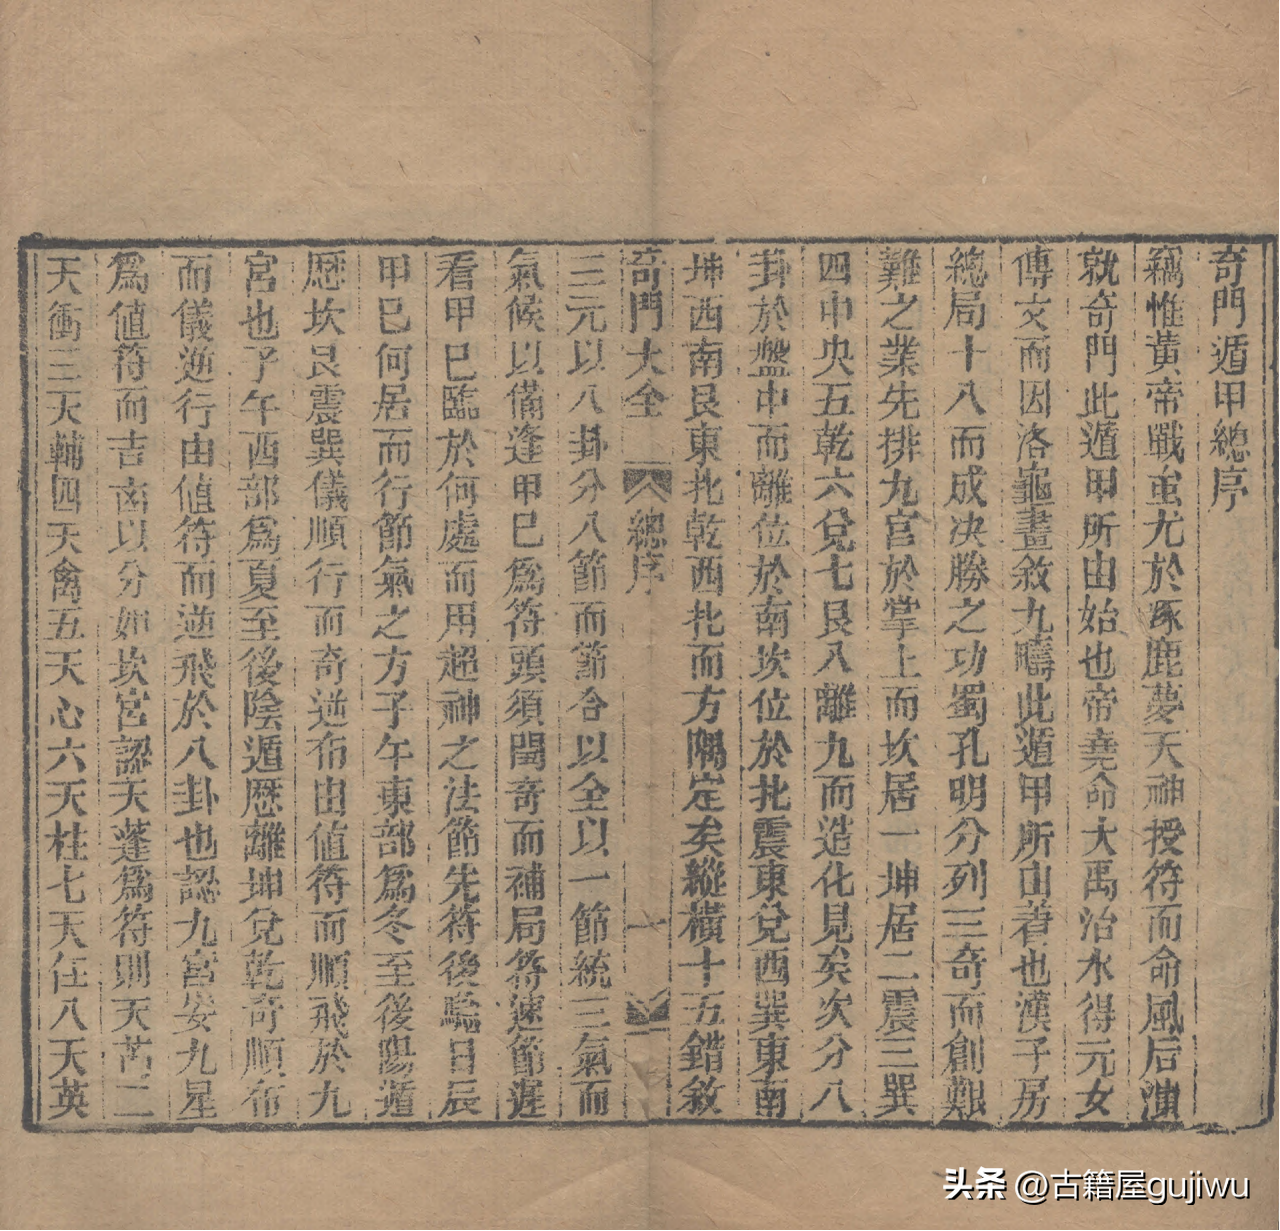 奇門遁甲總序
竊惟黃帝戰蚩尤於涿鹿夢天神授符而命風后演
就奇門此遁甲所由始也帝堯命大禹治水得元女
傳文而因洛龜畫敘九疇此遁甲所由著也漢子房
總局十八而成決勝之功蜀孔明分列三奇而創艱
難之業先排九宮於掌上而坎居一坤居二震三巽
四中央五乾六兌七艮八離九而造化見矣次分八
卦於盤中而離位於南坎位於北震東兌西巽東南
坤西南艮東北乾西北而方隅定矣縱橫十五錯敘
奇門大全 總序 一
三元以八卦分八節而節合以全以一節統三氣而
氣候以備逢甲巳爲符頭須閏奇而補局符速節遲
看甲巳臨於何處而用超神之法節先符後驗日辰
甲巳何居而行節氣之方子午東部爲冬至後陽遁
歷坎艮震巽儀順行而奇逆布由値符而順飛於九
宮也子午西部爲夏至後陰遁歷離坤兌乾奇順布
而儀逆行由値符而逆飛於八卦也認九宮安九星
爲値符而吉凶以分如坎宮認天蓬爲符則天芮二
天衝三天輔四天禽五天心六天柱七天任八天英
头条 @古籍屋gujiwu